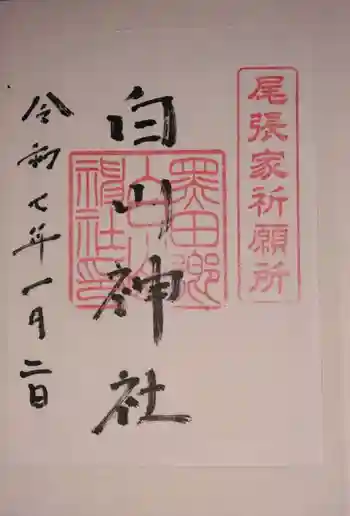 尾張家祈願所
白山神社
令和七年一月二日